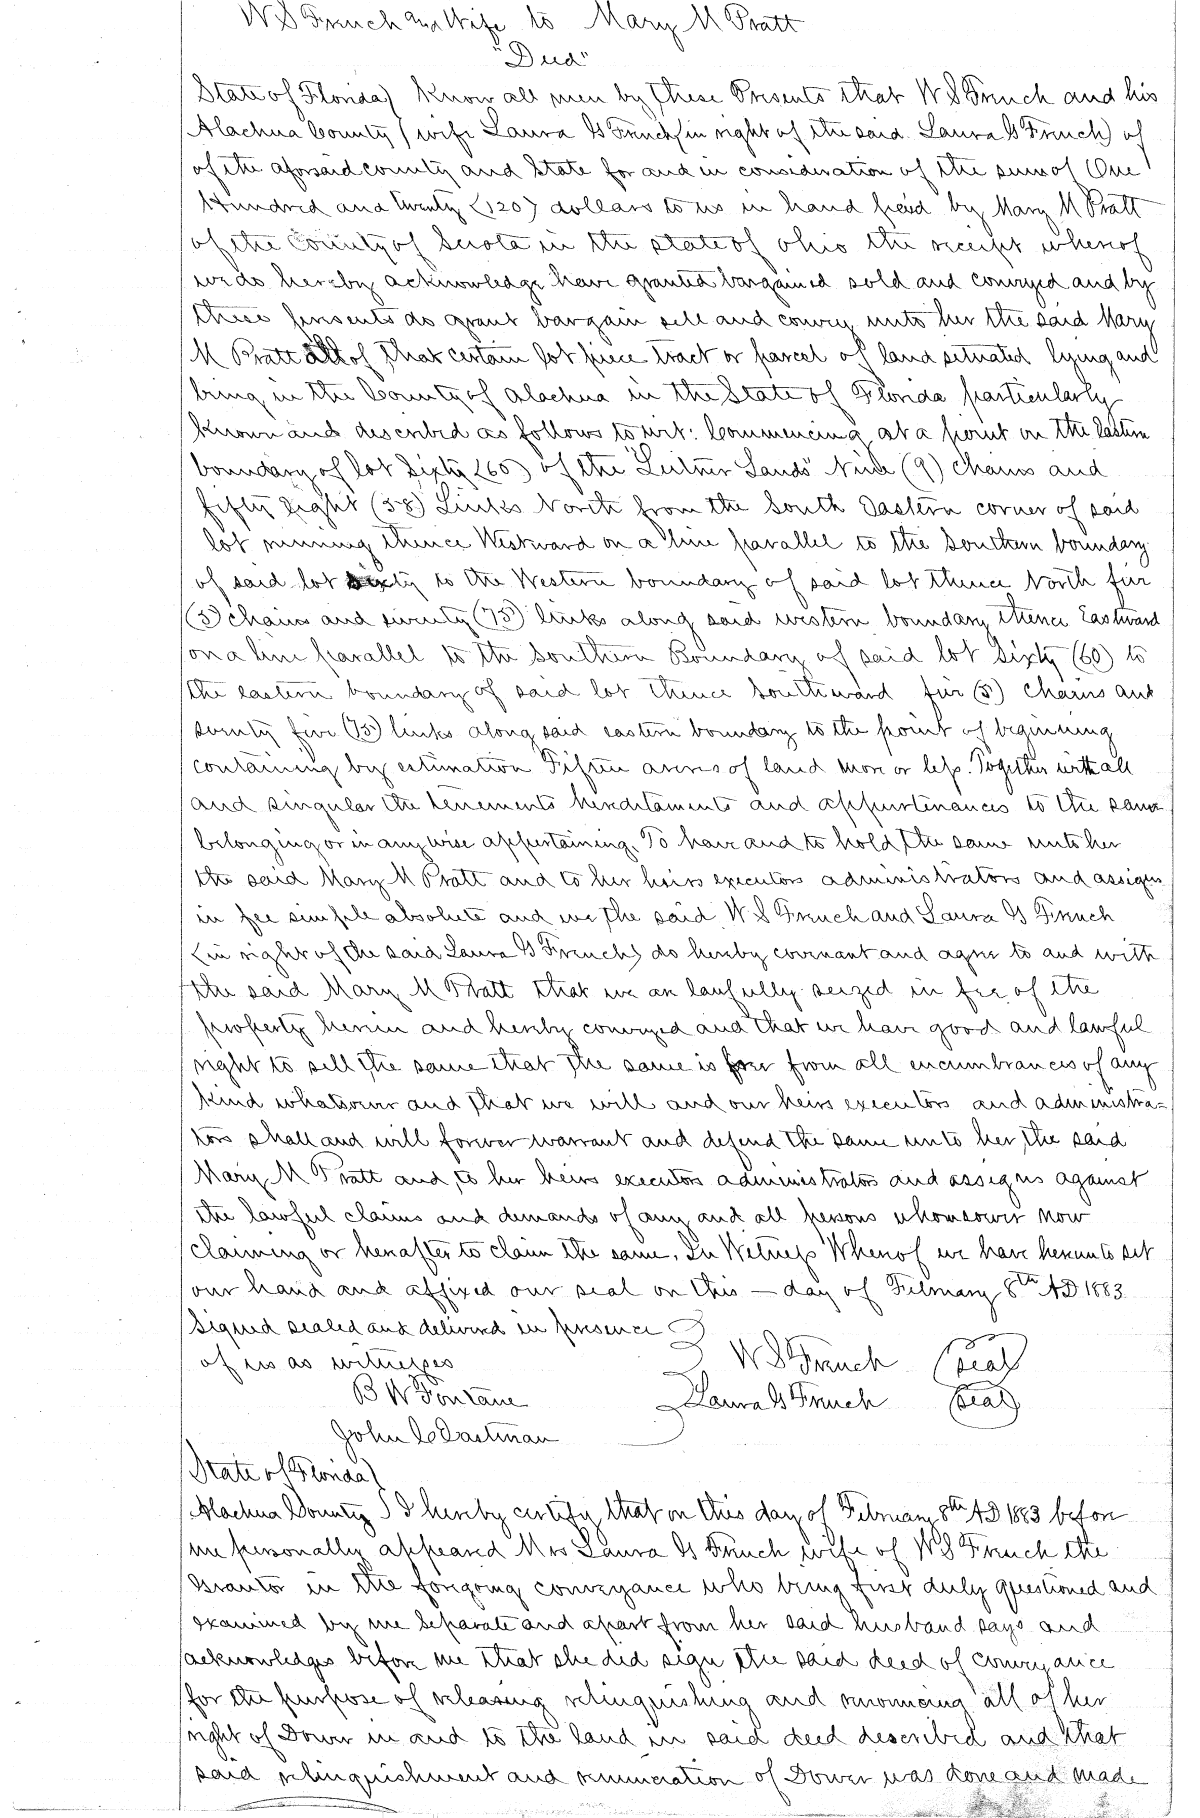 W S French and Wife to Mary M Pratt
"Deed"
State of Florida) Know all men by these Presents that W S French and his
Alachua County ) wife Laura G French (in right of the said Laura G French) of
of the aforsaid county and State for and in consideration of the sum of One
Hundred and twenty (120) dollars to us in hand paid by Mary M Pratt
of the County of Sciota in the state of Ohio the receipt whereof
we do hereby acknowledge have granted bargained sold and conveyed and by
these presents do grant bargain sell and convey unto her the said Mary
M Pratt all of that certain lot piece tract or parcel of land setuated lying and
being in the County of Alachua in the State of Florida particularly
known and described as follows to wit: Commencing at a point on the Eastern
boundary of lot Sixty (60) of the "Leitner Lands" Nine (9) chains and
fifty Eight (58) Links North from the South Eastern corner of said
lot running thence Westward on a line parallel to the Southern boundary
of said lot sixty to the Western boundary of said lot thence North five
(5) chains and seventy (75) links along said western boundary thence Eastward
on a line parallel to the Southern Boundary of said lot Sixty (60) to
the eastern boundary of said lot thence Southward five (5) chains and
seventy five (75) links along said eastern boundary to the point of beginning
containing by estimation Fifteen acres of land more or less. Together with all
and singular the tenements hereditaments and appurtenances to the same
belonging or in any wise appertaining. To have and to hold the same unto her
the said Mary M Pratt and to her heirs executors administrators and assigns
in fee simple absolute and we the said W S French and Laura G French
(in right of the said Laura G French) do hereby covenant and agree to and with
the said Mary M Pratt that we are lawfully seized in fee of the
property herein and hereby conveyed and that we have good and lawful
right to sell the same that the same is free from all encumbrances of any
kind whatsoever and that we will and our heirs executors and administra-
tors shall and will forever warrant and defend the same unto her, the said
Mary M Pratt and to her heirs executors administrators and assigns against
the lawful claims and demands of any and all persons whomsoever now
claiming or hereafter to claim the same. In Witness Whereof we have hereunto set
our hand and affixed our seal on this — day of February 8th AD 1883
Signed sealed and delivered in presence
of us as witnesses W S French (Seal)
B W Fontane Laura G French (Seal)
John C Eastman
State of Florida)
Alachua County ) I hereby certify that on this day of February 8th AD 1883 before
me personally appeared Mrs Laura G French wife of W S French the
Grantor in the foregoing conveyance who being first duly questioned and
examined by me Separate and apart from her said husband says and
acknowledges before me that she did sign the said deed of conveyance
for the purpose of releasing relinquishing and renouncing all of her
right of Dower in and to the land in said deed described and that
said relinquishment and renunciation of Dower was done and made